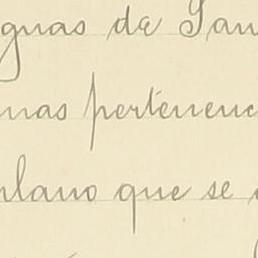 guas de San
nas pertenenc
plano que se